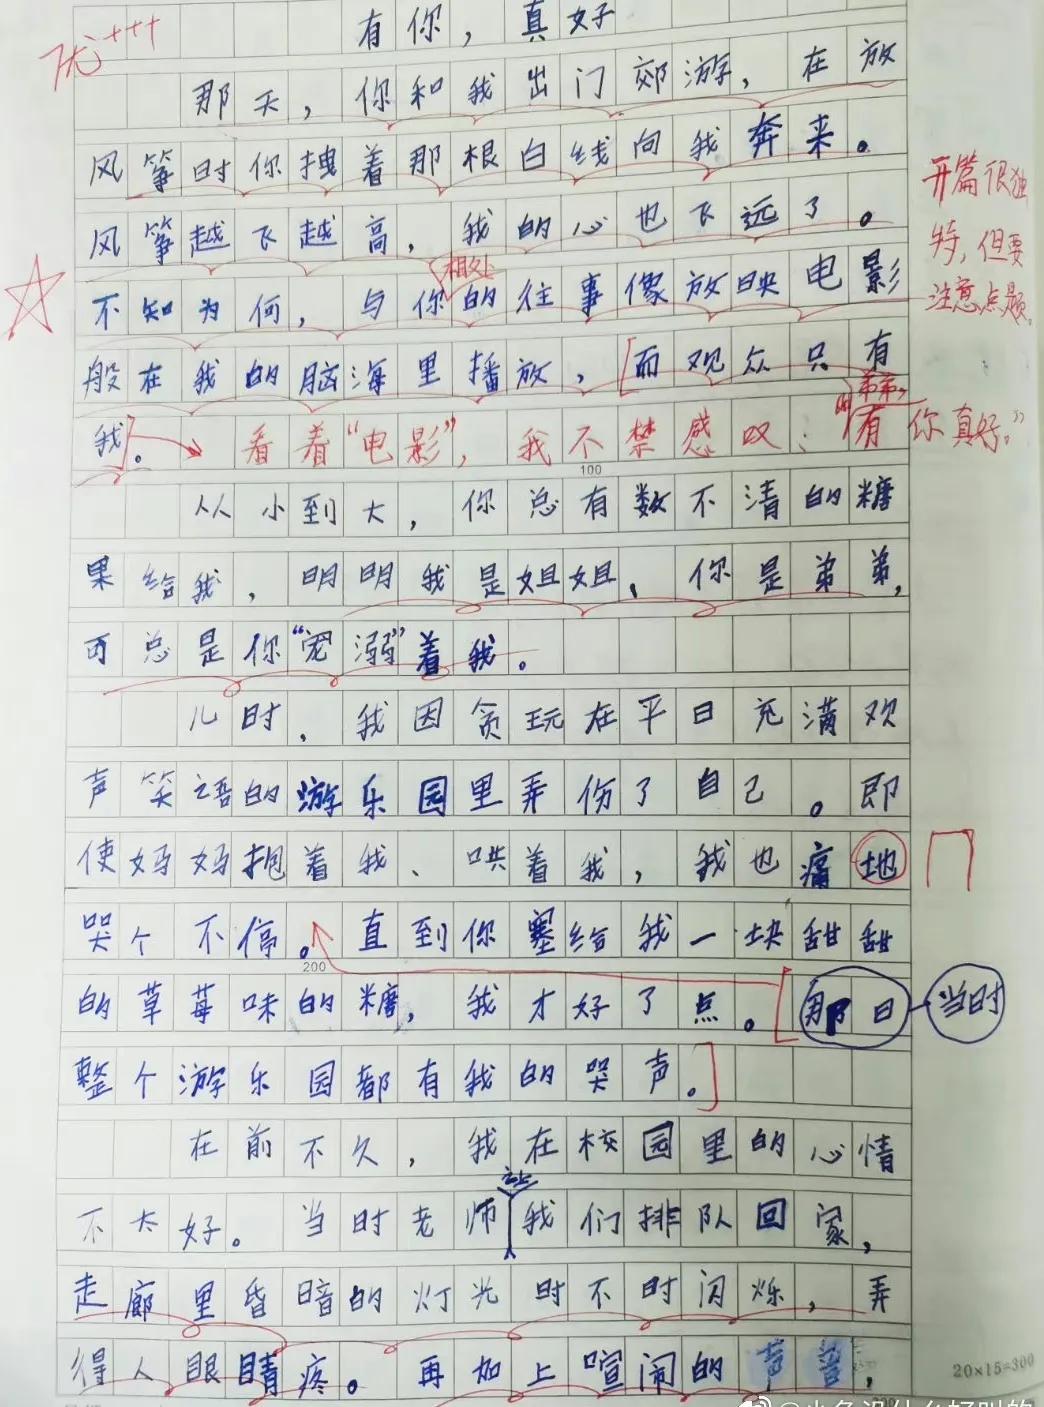 优+++
有你，真好
那天，你和我出门郊游，在放
风筝时你拽着那根白线向我奔来。
开篇很独
风筝越飞越高，我的心也飞远了。
特，但要
相处
不知为何，与你的往事像放映电影
注意点题。
般在我的脑海里播放，而观众只有
弟弟，
我。看着“电影”，我不禁感叹：“有你真好。”
100
从小到大，你总有数不清的糖
果给我，明明我是姐姐、你是弟弟，
可总是你“宠溺”着我。
儿时，我因贪玩在平日充满欢
声笑语的游乐园里弄伤了自己。即
使妈妈抱着我、哄着我，我也痛地
哭个不停。直到你塞给我一块甜甜
200
的草莓味的糖，我才好了点。那日
当时
整个游乐园都有我的哭声。
在前不久，我在校园里的心情
让
不太好。当时老师我们排队回家，
走廊里昏暗的灯光时不时闪烁，弄
得人眼睛疼。再加上喧闹的声音，
20×15=300